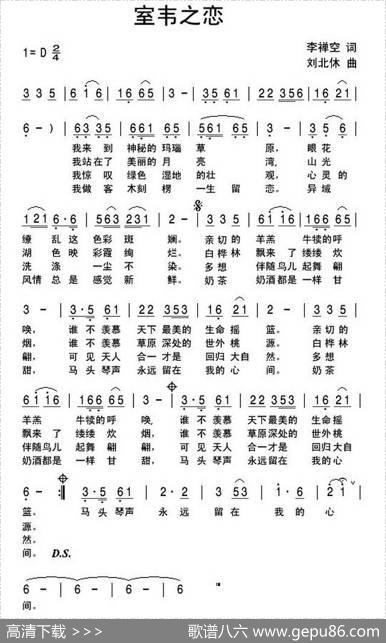 室韦之恋
1=D 2/4
李禅空 词
刘北休 曲
3 3 5 | 6 1 6 | 16 65 | 3 - | 35 61 | 22 353 | 16 21 |
6 - ) | 63 35 | 661 65 | 561 65 | 3 - | 35 61 |
我来到 神秘的玛瑙 草 原，眼花
我站在了 美丽的月 亮 湾，山光
我惊叹 绿色 湿地的壮 观，心灵的
我做客 木刻楞 一生 留 恋。异域
121 6·6 | 563 231 | 2 - | 3 3 5 | 61 16 | 166 65 |
缭 乱 这色彩 斑 斓。 亲切的 羊羔 牛犊的呼
湖 色映 彩霞 绚 烂。 白桦林 飘来 了 缕缕 炊
洗 涤 一尘 不 染。 多想 伴随鸟儿 起舞 翩
风情 总是 感觉 新 鲜。 奶茶 奶酒都是 一样 甘
3 - | 3·5 61 | 22 353 | 16 21 | 2 - | 3 3 5 |
唤， 谁 不 羡慕 天下 最美的 生命 摇 篮。 亲切的
烟， 谁 不 羡慕 草原 深处的 世外 桃 源。 白桦林
翩， 可 见 天人 合一 才是 回归 大自 然。 多想
甜， 马 头 琴声 永远 留在 我的 心 间。 奶茶
61 16 | 166 65 | 3 - | 3·5 61 | 22 353 | 16 21 |
羊羔 牛犊的呼 唤， 谁 不羡慕 天下最美的 生命 摇
飘来 了 缕缕 炊 烟， 谁 不羡慕 草原深处的 世外 桃
伴随鸟儿 起舞 翩 翩， 可 见天人 合一才是 回归 大自
奶酒都是 一样 甘 甜， 马 头琴声 永远留在 我的 心
6 - :| 3·5 61 | 2·2 | 3 53 | 1·6 | 2 1 |
篮。 马 头 琴声 永 远 留 在 我 的 心
源。
然。
间。 D.S.
6 - | 6 - | 6 - | 6 - ‖
间。
高清下载 >>>
歌谱八六 www.gepu86.com